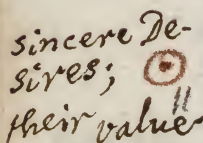 sincere De-
sires; ☉
their value